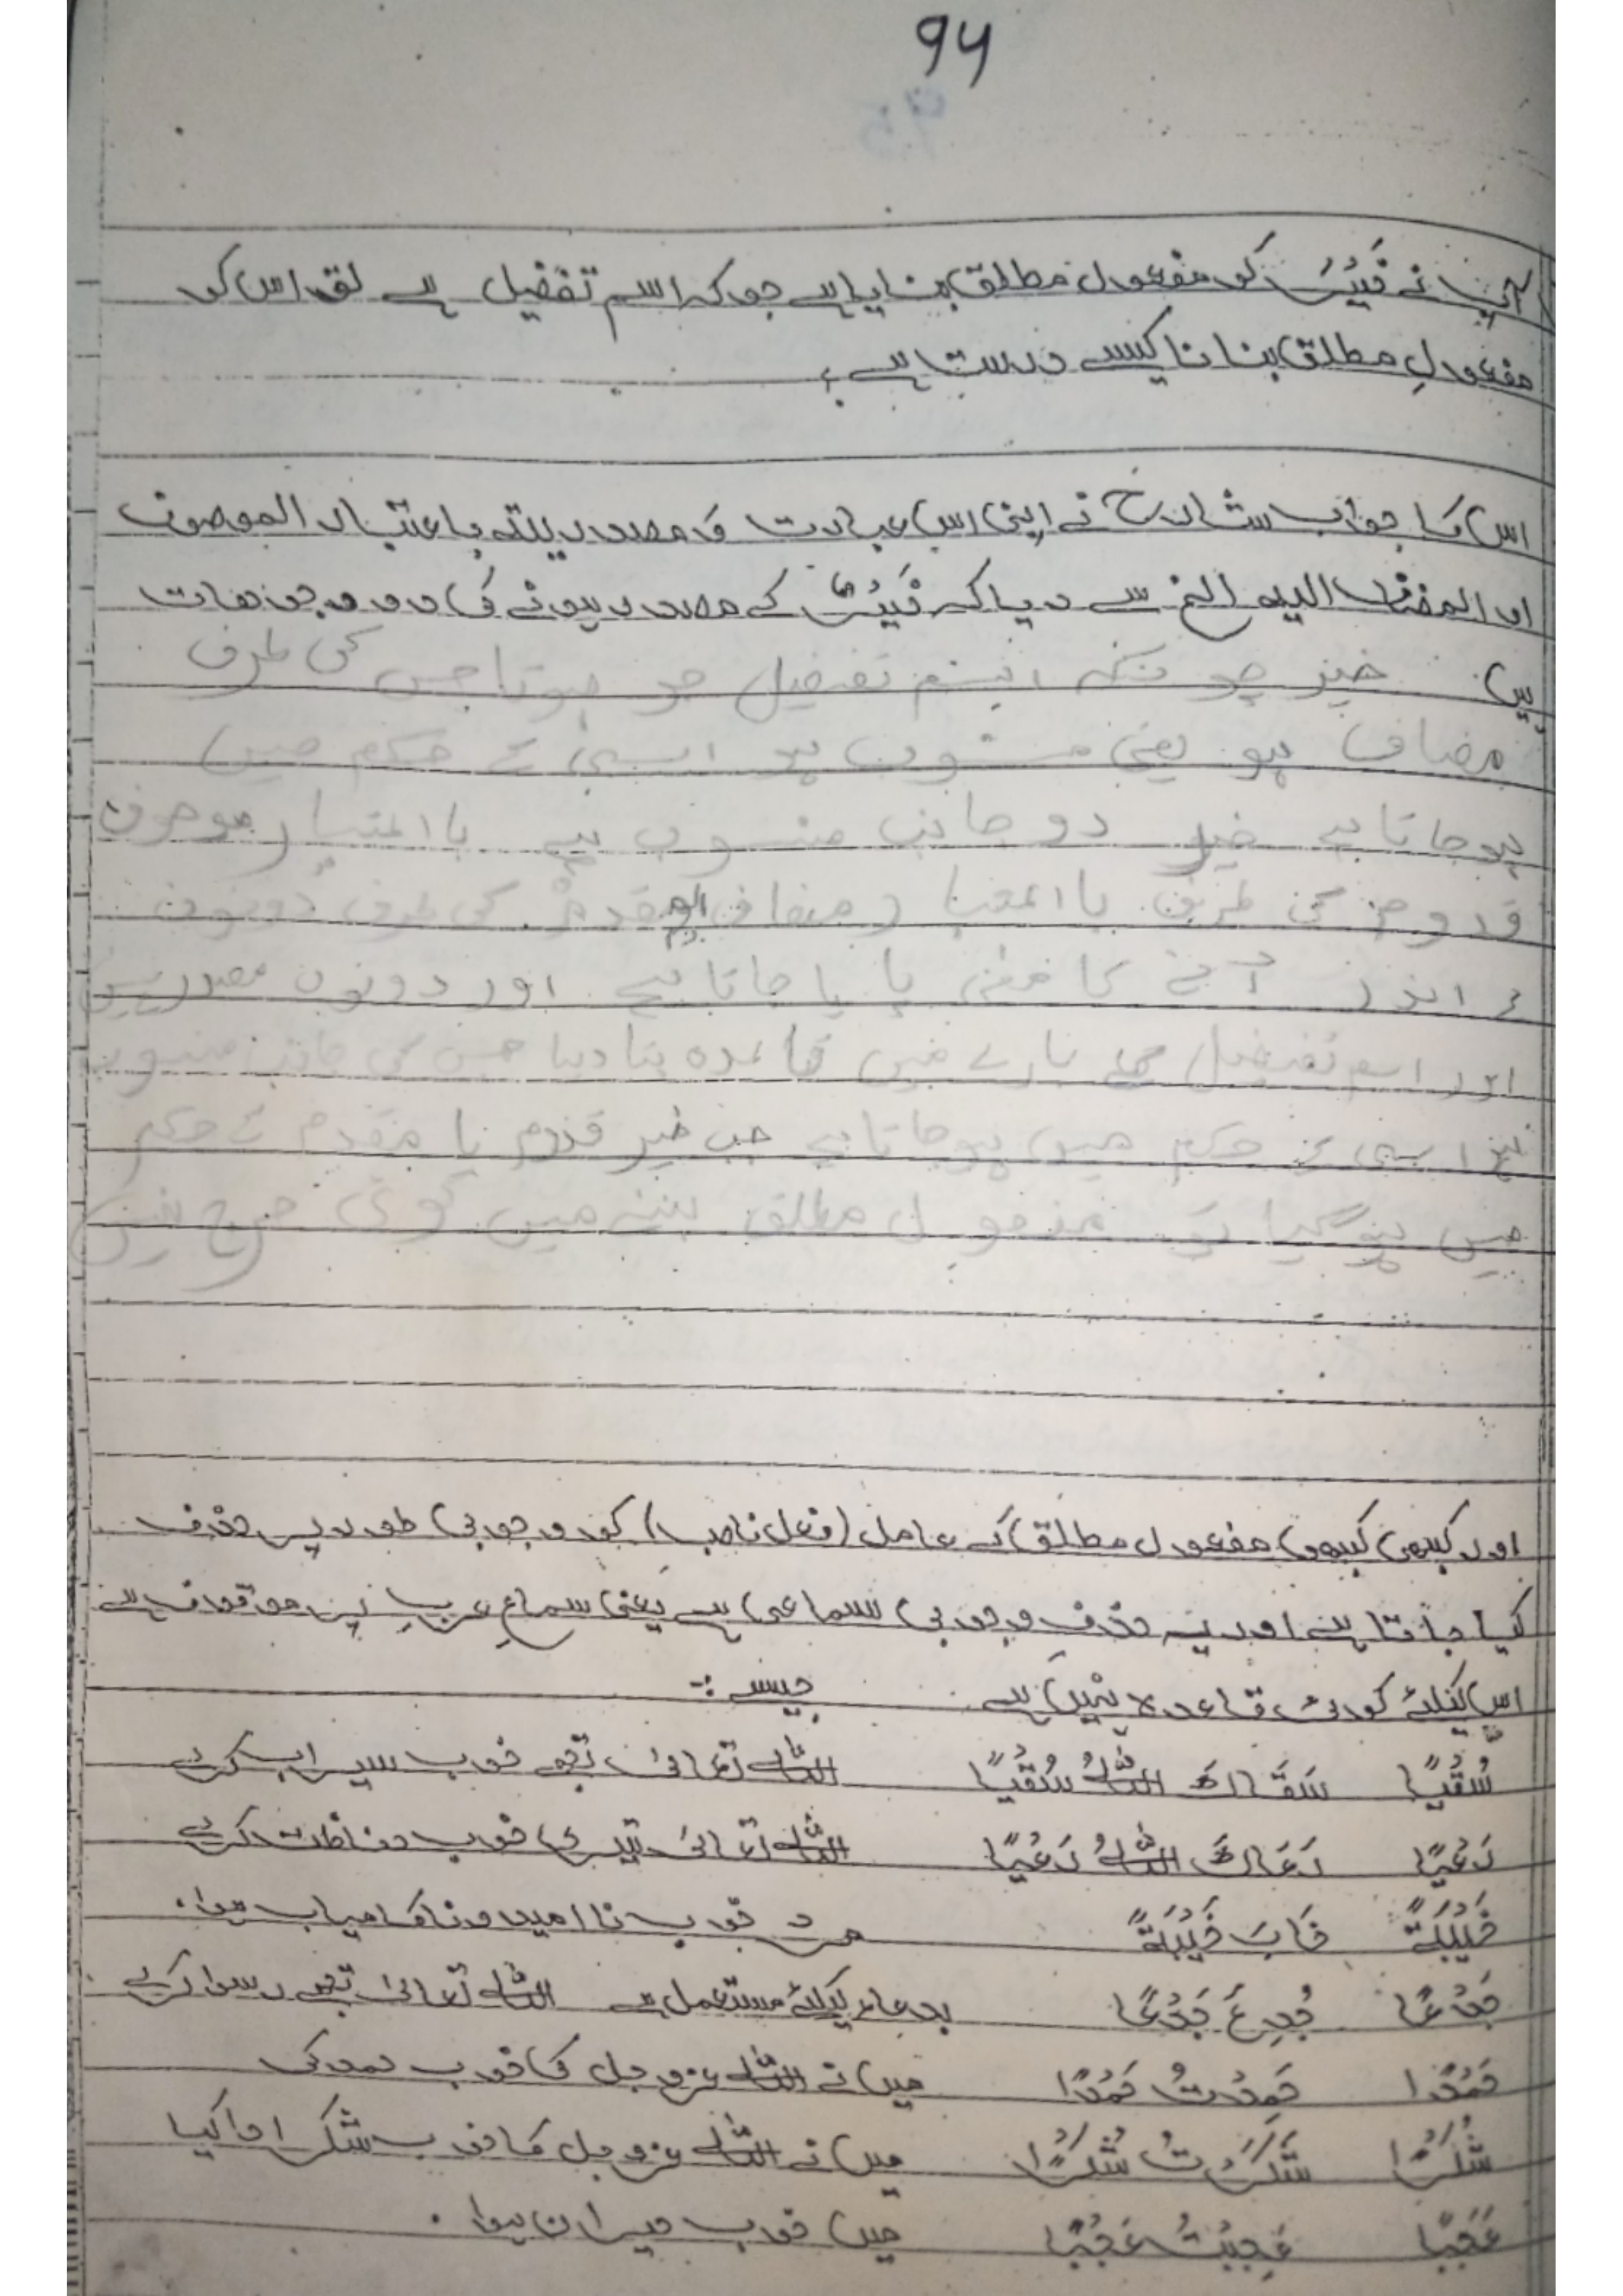 94
آپ نے خَیْرَ کو مفعول مطلق بنایا ہے جو کہ اسم تفضیل ہے تو اس کو
مفعولِ مطلق بنانا کیسے درست ہے؟
اس کا جواب شارح نے اپنی اس عبارت و مصدریتہ باعتبار الموصوف
او المضاف الیہ الخ سے دیا کہ خَیْرَ کے مصدر ہونے کی دو وجوہات
ہیں خیر چونکہ اسم تفضیل جو ہوتا جس کی طرف
مضاف ہو یعنی منسوب ہو اسی کے حکم میں
ہوجاتا ہے خیر دو جانب منسوب ہے باعتبار موصوف
قدوم کی طرف باعتبار مضاف الیہ مقدم کی طرف دونوں
کے اندر آنے کا معنی پایا جاتا ہے اور دونوں مصدر ہیں
اور اسم تفضیل کے بارے میں قاعدہ بتا دیا جس کی جانب منسوب
اسی کے حکم میں ہوجاتا ہے جب خیر قدوم یا مقدم کے حکم
میں ہوگیا تو مفعول مطلق بننے میں کوئی حرج نہیں
اور کبھی کبھی مفعول مطلق کے عامل (فعل ناصب) کو وجوبی طور پر حذف
کیا جاتا ہے اور یہ حذف وجوبی سماعی ہے یعنی سماعِ عرب پر موقوف ہے
اس کیلئے کوئی قاعدہ نہیں ہے جیسے :-
سُقْیًا سَقَاكَ اللّٰهُ سُقْیًا اللّٰه تعالیٰ تجھے خوب سیراب کرے
رَعْیًا رَعَاكَ اللّٰهُ رَعْیًا اللّٰه تعالیٰ تیری خوب حفاظت کرے
خَیْبَةً خَابَ خَیْبَةً مرد خوب نا امید و ناکامیاب ہوا.
جَدْعًا جُدِعَ جَدْعًا بدعاء کیلئے مستعمل ہے اللّٰه تعالیٰ تجھے رسوا کرے
حَمْدًا حَمِدْتُ حَمْدًا میں نے اللّٰه عزوجل کی خوب حمد کی
شُکْرًا شَکَرْتُ شُکْرًا میں نے اللّٰه عزوجل کا خوب شکر ادا کیا
عَجَبًا عَجِبْتُ عَجَبًا میں خوب حیران ہوا.